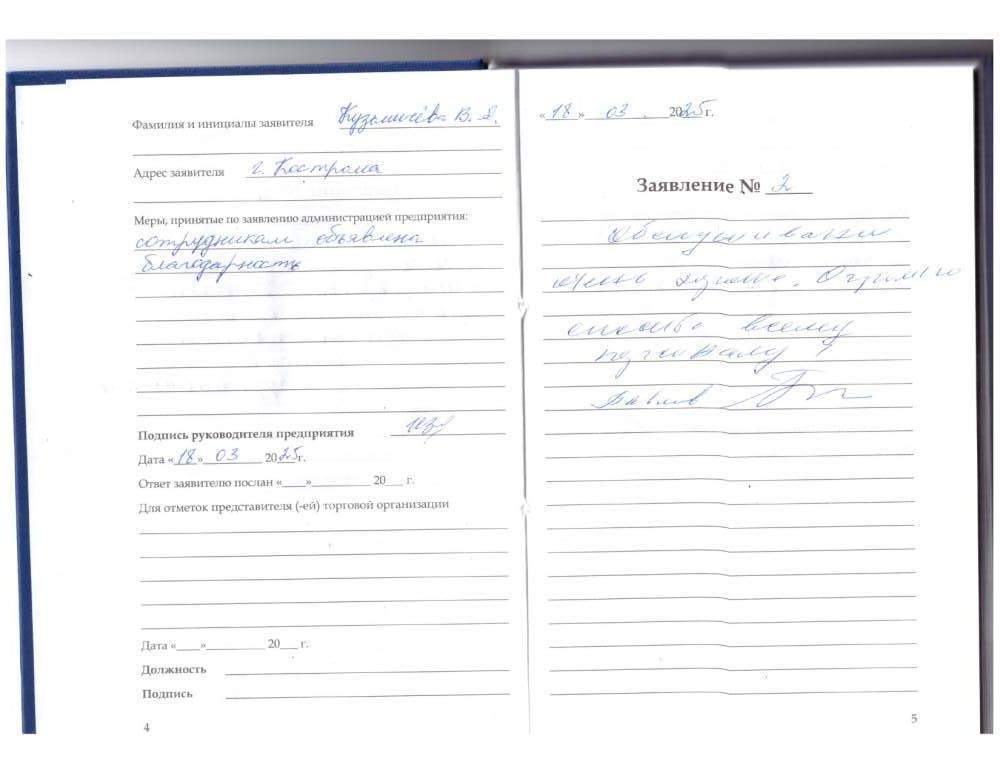 Фамилия и инициалы заявителя Кузьмичёва В. Я.
Адрес заявителя г. Кострома
Меры, принятые по заявлению администрацией предприятия:
сотрудникам объявлена
благодарность
Подпись руководителя предприятия
Дата «18» 03 2025г.
Ответ заявителю послан «___»__________ 20___ г.
Для отметок представителя (-ей) торговой организации
Дата «____»__________ 20___ г.
Должность
Подпись
4
«18» 03. 2025г.
Заявление № 2
Обслуживание
очень хорошее. Огромное
спасибо всему
персоналу!
5